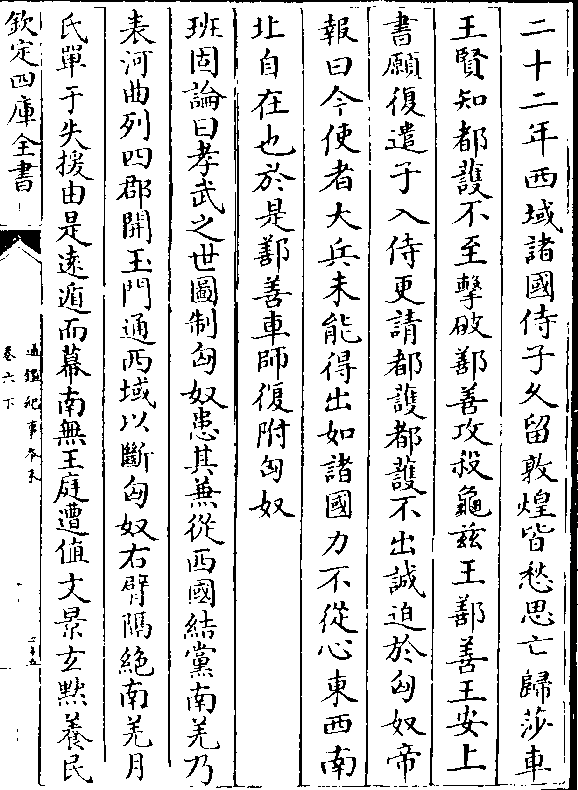 二十二年西域諸國侍子久留敦煌皆愁思亡歸莎車
王賢知都護不至擊破鄯善攻殺龜兹王鄯善王安上
書願復遣子入侍更請都護都護不出誠迫於匈奴帝
報曰今使者大兵未能得出如諸國力不從心東西南
北自在也於是鄯善車師復附匈奴
班固論曰孝武之世圖制匈奴患其兼從西國結黨南羌乃
表河曲列四郡開玉門通西域以斷匈奴右臂隔絶南羌月
氏單于失援由是逺遁而幕南無王庭遭值文景玄黙養民
欽定四庫全書
通鑑紀事本末
卷六下
二十五